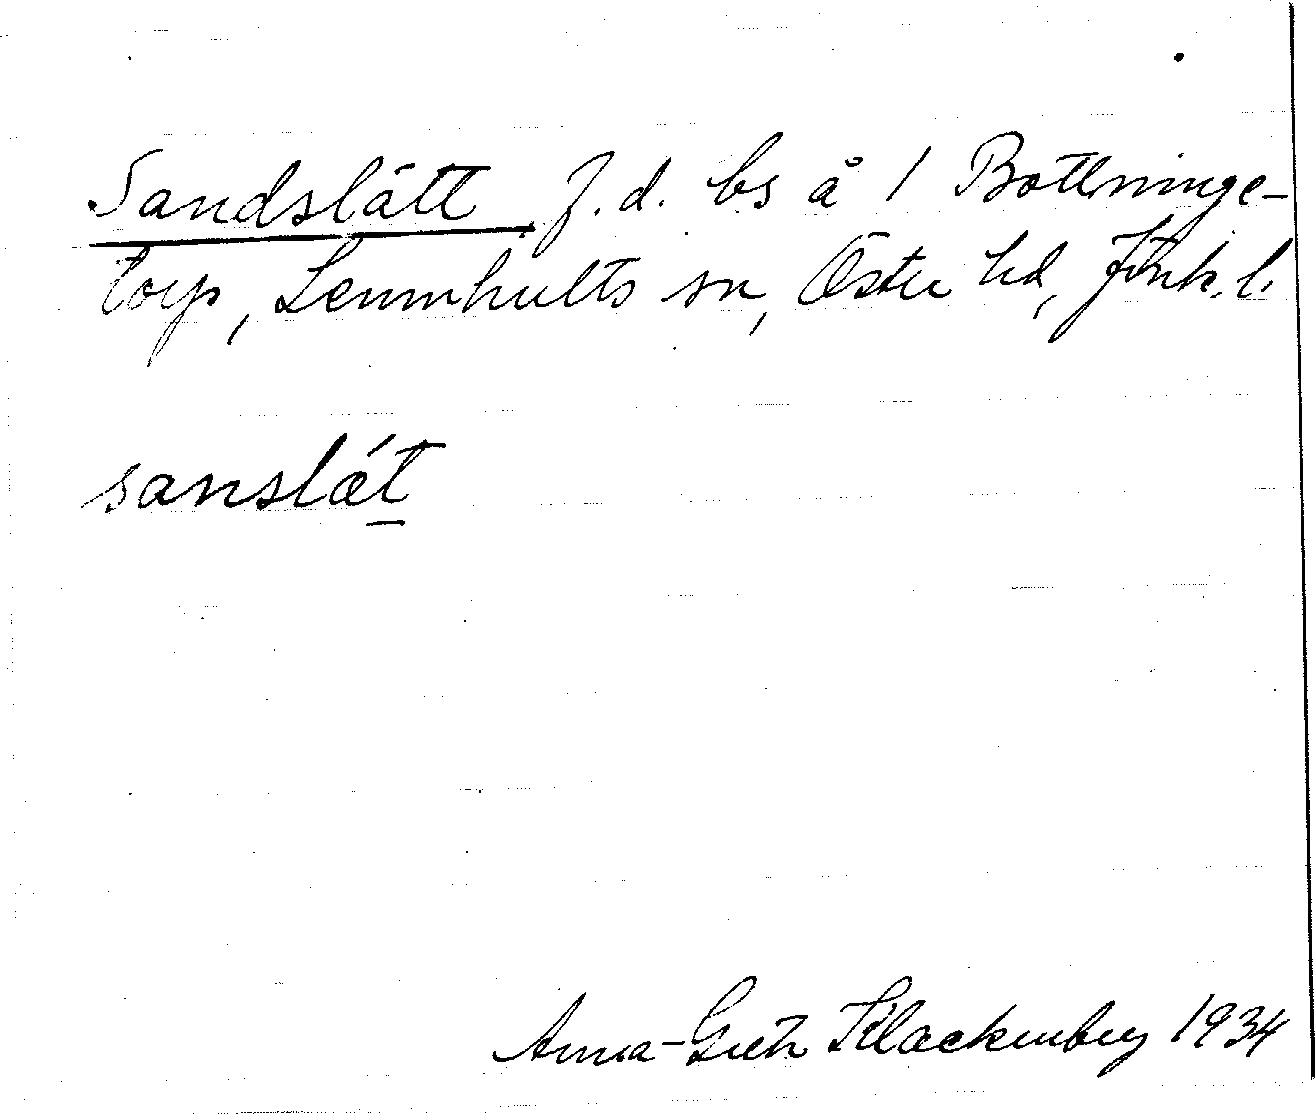 Sandslätt f.d. bs å 1 Bottninge-
torp, Lemnhults sn, Östra hd, Jönk. l.
sanslǽt
Anna-Greth Klackenberg 1934